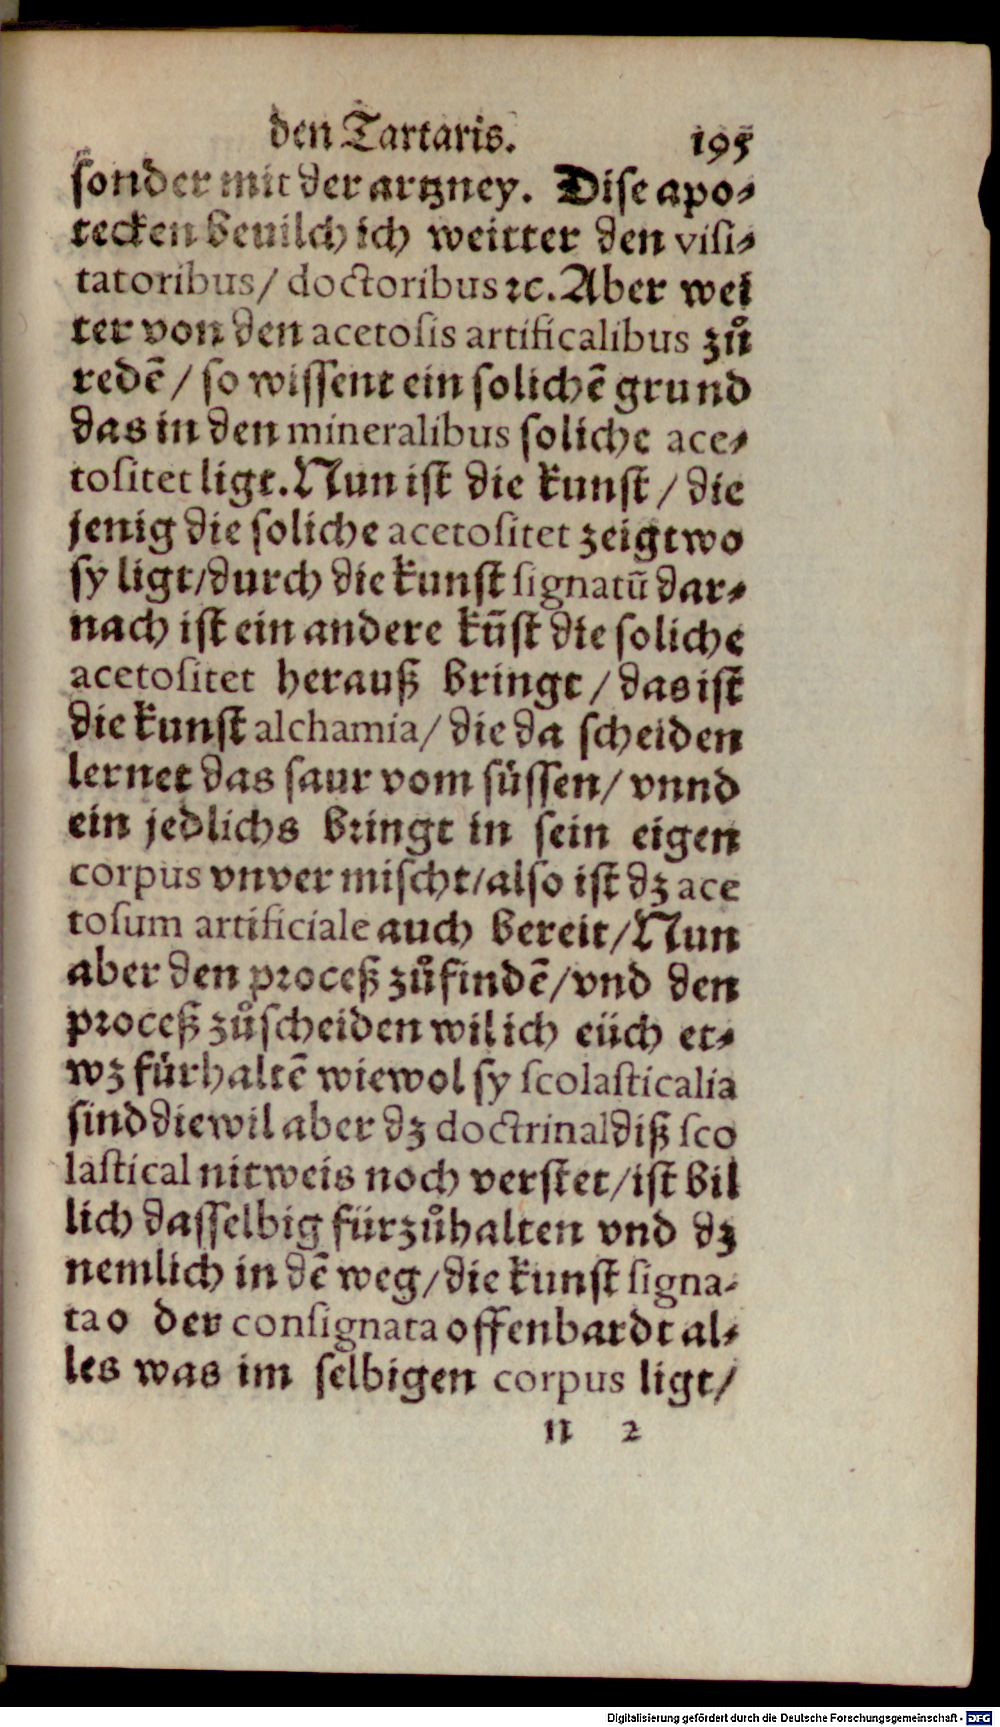 den Tartaris. 195
sonder mit der artzney. Dise apo-
tecken beuilch ich weitter den visi-
tatoribus/ doctoribus ꝛc. Aber wei
ter von den acetosis artificalibus zů
redē / so wissent ein solichē grund
das in den mineralibus soliche ace-
tositet ligt. Nun ist die kunst / die
jenig die soliche acetositet zeigt wo
sy ligt/durch die kunst signatū dar-
nach ist ein andere kūst die soliche
acetositet herauß bringt / das ist
die kunst alchamia/ die da scheiden
lernet das saur vom süssen/ vnnd
ein jedlichs bringt in sein eigen
corpus vnver mischt/also ist dz ace
tosum artificiale auch bereit/Nun
aber den proceß zůfindē/vnd den
proceß zůscheiden wil ich eüch et-
wz fürhaltē wiewol sy scolasticalia
sind diewil aber dz doctrinal diß sco
lastical nit weis noch verstet/ist bil
lich dasselbig fürzůhalten vnd dz
nemlich in dē weg/die kunst signa-
ta o der consignata offenbardt al-
les was im selbigen corpus ligt/
n 2
Digitalisierung gefördert durch die Deutsche Forschungsgemeinschaft - DFG